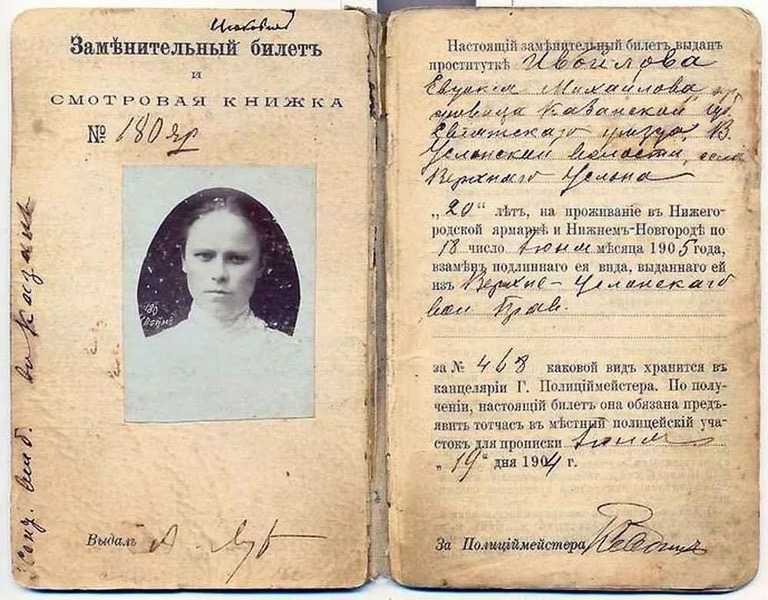 Замѣнительный билетъ
и
СМОТРОВАЯ КНИЖКА
№ 180 яр
Выдалъ
Настоящій замѣнительный билетъ выданъ
проституткѣ Ивойлова
Евдокія Михайлова
Казанской губ
уѣзда, В.
Услонской волости, села
Верхняго Услона
„20“ лѣтъ, на проживаніе въ Нижего-
родской ярмаркѣ и Нижнемъ-Новгородѣ по
18 число Іюня мѣсяца 1905 года,
взамѣнъ подлиннаго ея вида, выданнаго ей
изъ Верхне-Услонскаго
вол Прав.
за № 468 каковой видъ хранится въ
канцеляріи Г. Полиціймейстера. По полу-
ченіи, настоящій билетъ она обязана предъ-
явить тотчасъ въ мѣстный полицейскій уча-
стокъ для прописки Іюня
„19“ дня 1904 г.
За Полиціймейстера